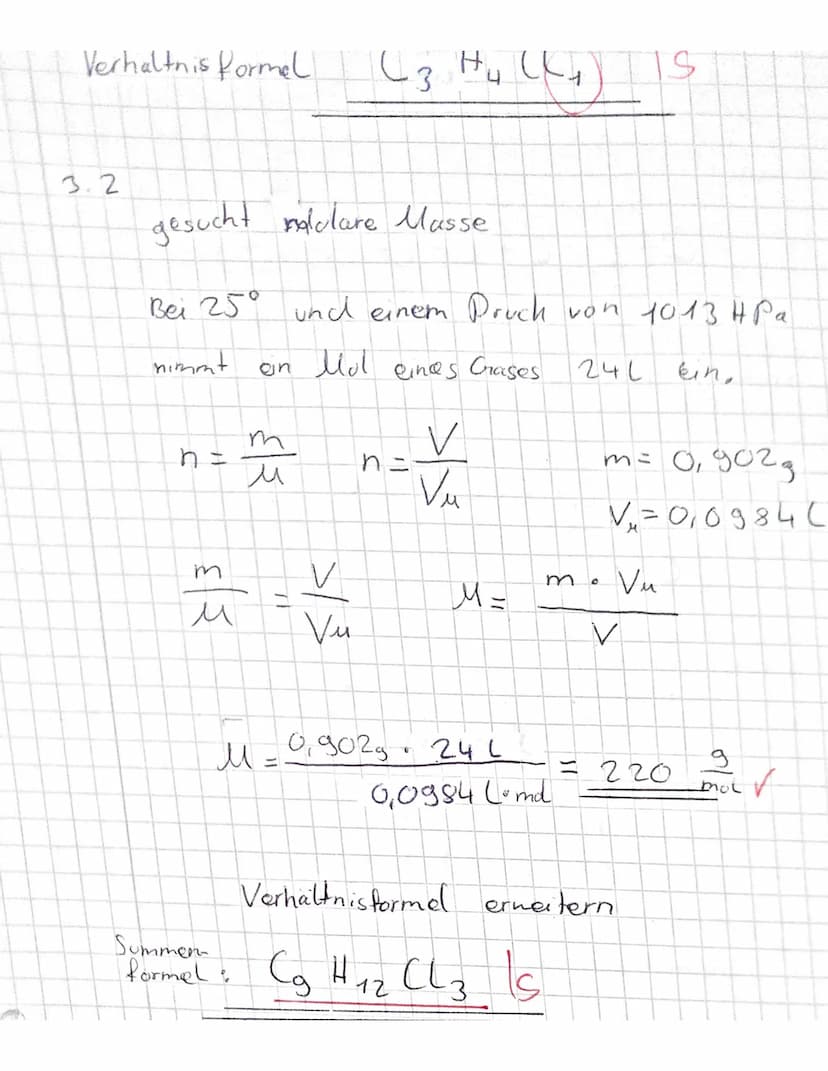 Verhaltnisformel C3 H4 Cl1 1S
3.2
gesucht molare Masse
Bei 25° und einem Druck von 1013 HPa
nimmt ein Mol eines Gases 24L ein.
n = m/M n = V/VM m = 0,902g
VM = 0,0984 L
m/M = V/VM M = m · VM / V
M = 0,902g · 24L / 0,0984 L·mol = 220 g/mol ✓
Verhältnisformel erweitern
Summen-
formel: C9 H12 CL3 1S